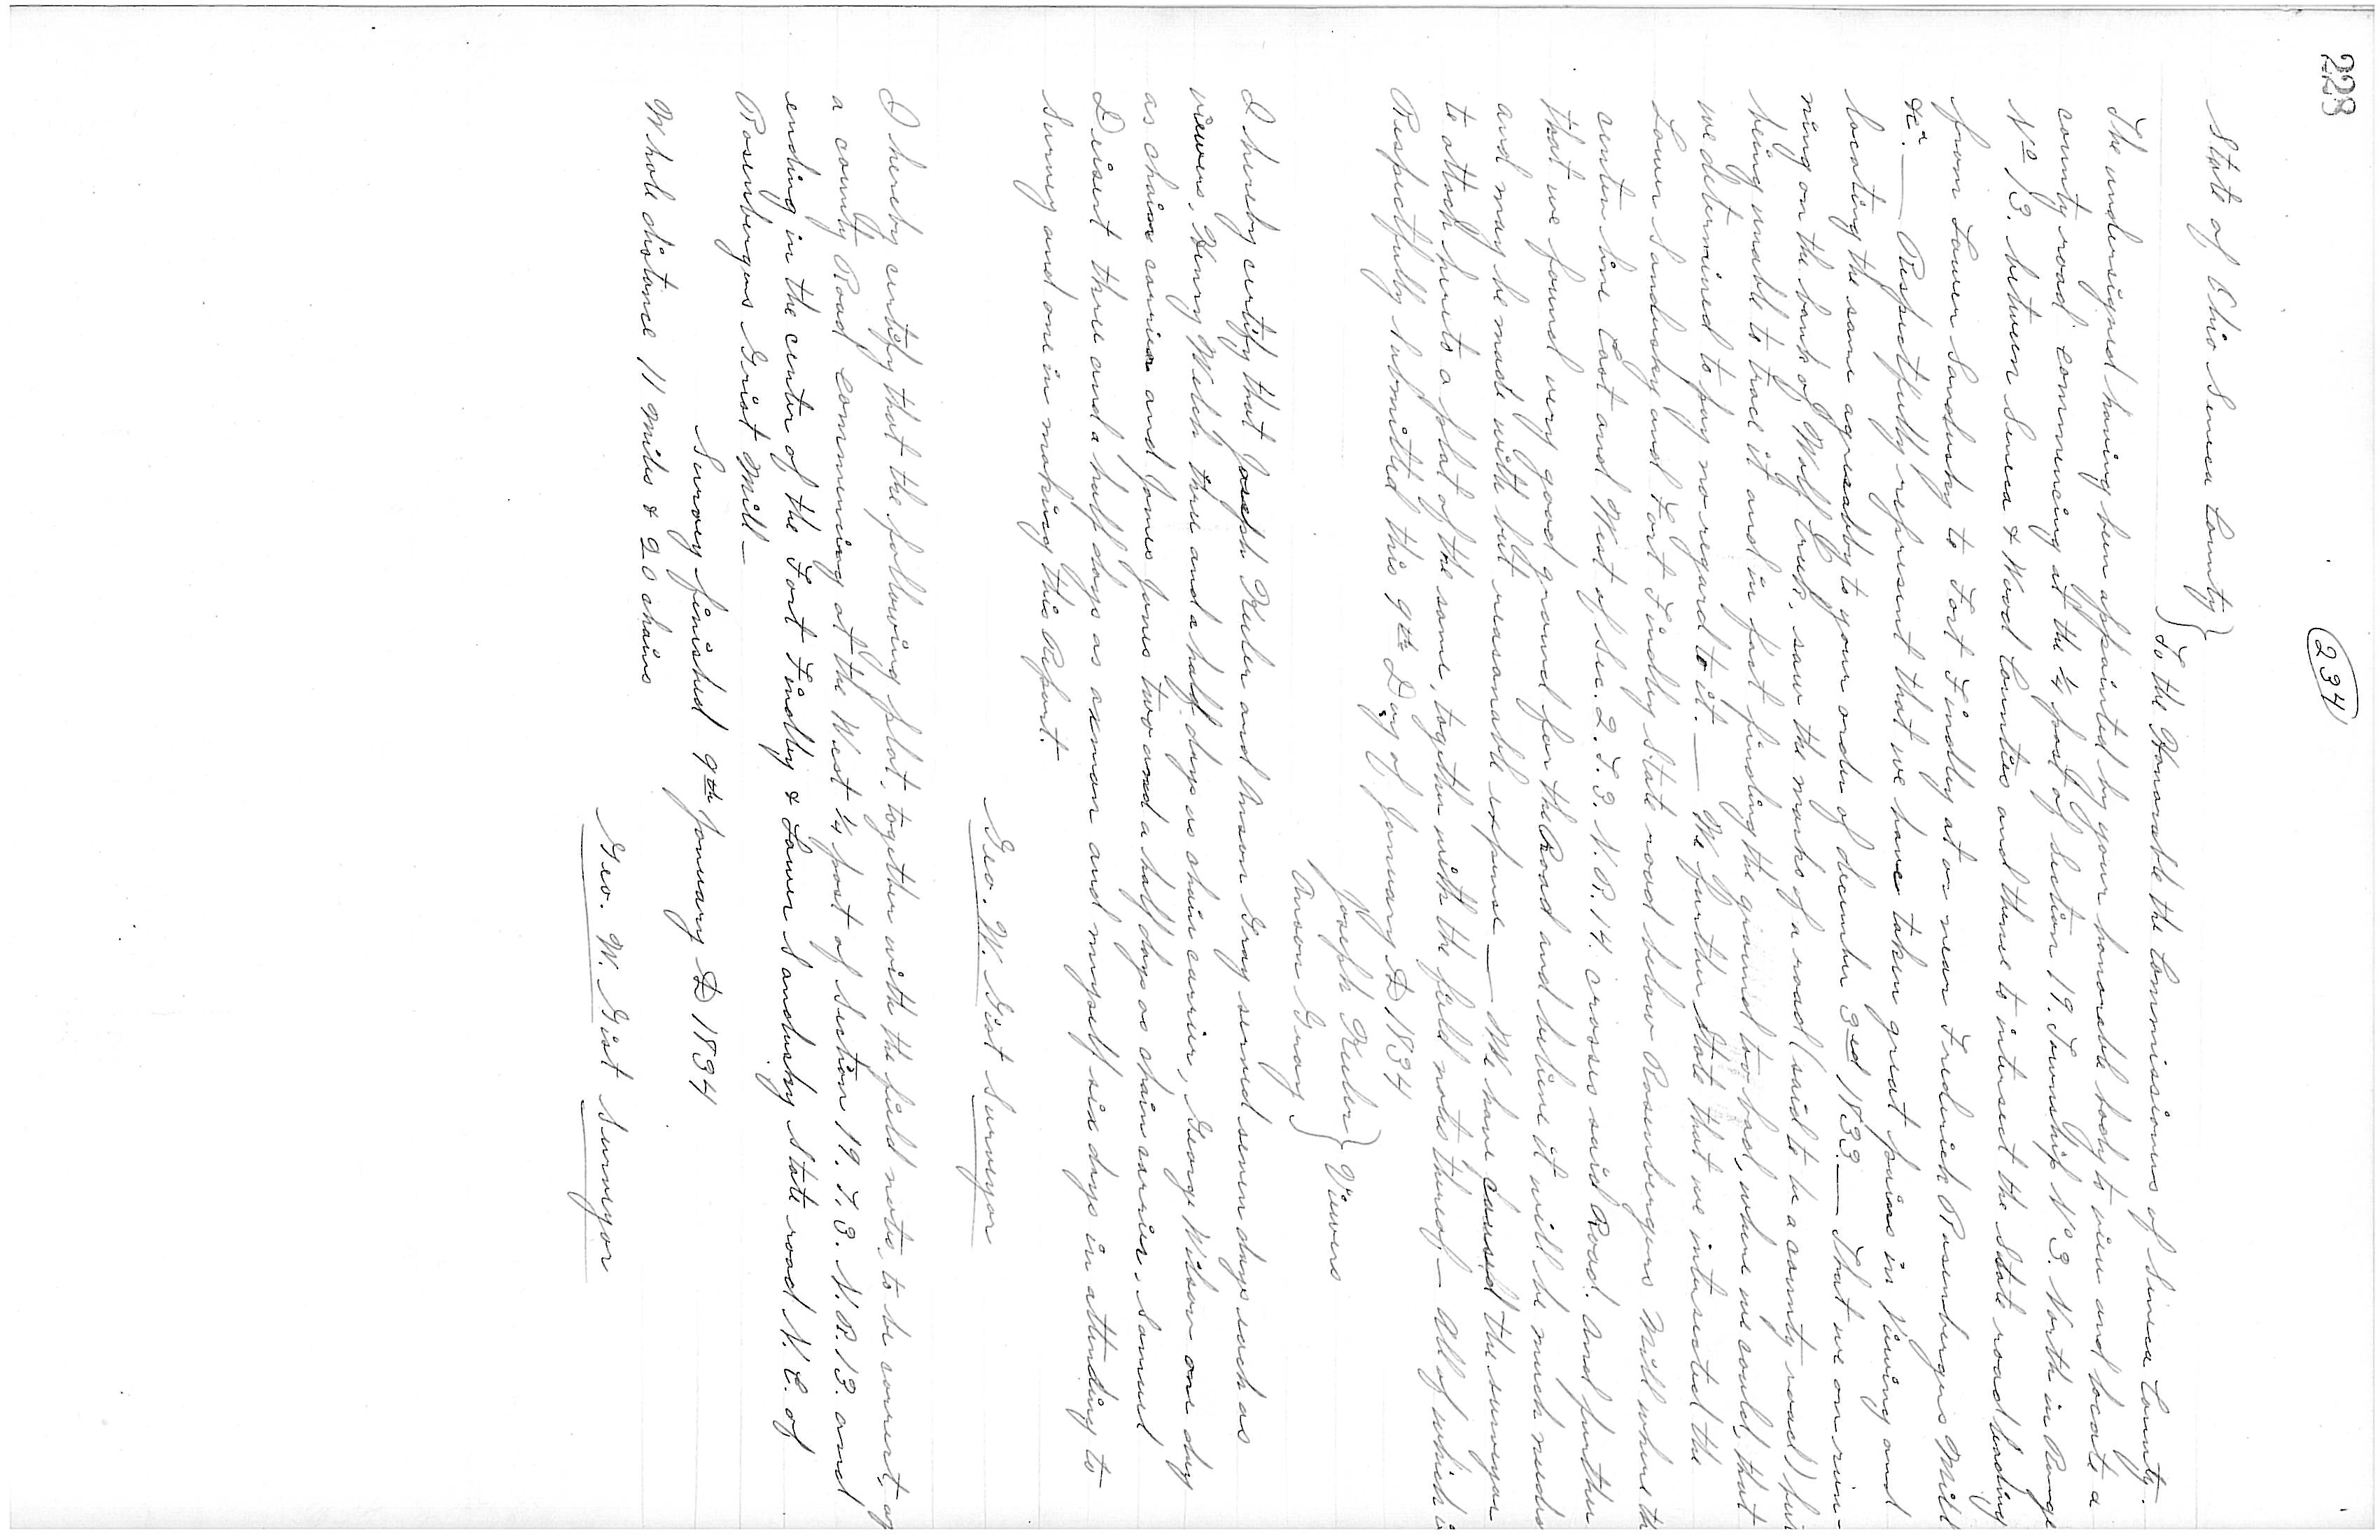 228
234
State of Ohio Seneca County }
To the Honorable the Commissioners of Seneca County.
The undersigned having been appointed by your honorable body to view and locate a
county road commencing at the ¼ post of Section 19. Township Nº 3. North in Range
Nº 13. between Seneca & Wood Counties and thence to intersect the State road leading
from Lower Sandusky to Fort Findley at or near Frederick Rosenbergers Mill
&c. — Respectfully represent that we have taken great pains in viewing and
locating the same agreeably to your order of december 3rd 1833 — That we on run-
ning on the bank of Wolf Creek, saw the marks of a road (said to be a county road) but
being unable to trace it and in fact finding the ground too bad, where we could, that
we determined to pay no regard to it. — We further state that we intersected the
Lower Sandusky and Fort Findley State road below Rosenbergers Mill where the
center line East and West of Sec. 2. T. 3. N. R. 14. crosses said Road. and further
that we found very good ground for the Road and believe it will be much needed
and may be made with but reasonable expense — We have caused the surveyor
to attach hereto a plat of the same, together with the field notes thereof — All of which is
Respectfully Submitted this 9th Day of January AD 1834
Joseph Keeler
Anson Gray } Viewers
I hereby certify that Joseph Keeler and Anson Gray served seven days each as
viewers, Henry Welch three and a half days as chain carrier, George Wilson one day
as chain carrier and James Jones two and a half days as chain carrier, Samuel
three and a half days as axman and myself six days in attending to
Survey and one in making this Report.
Geo. W. Gist Surveyor
I hereby certify that the following plat, together with the field notes, to be correct, of
a county Road commencing at the West ¼ post of Section 19. T. 3. N. R. 13. and
ending in the center of the Fort Findley & Lower Sandusky State road N. E. of
Rosenbergers Grist Mill —
Survey finished 9th January AD 1834
Whole distance 11 miles & 20 chains
Geo. W. Gist Surveyor